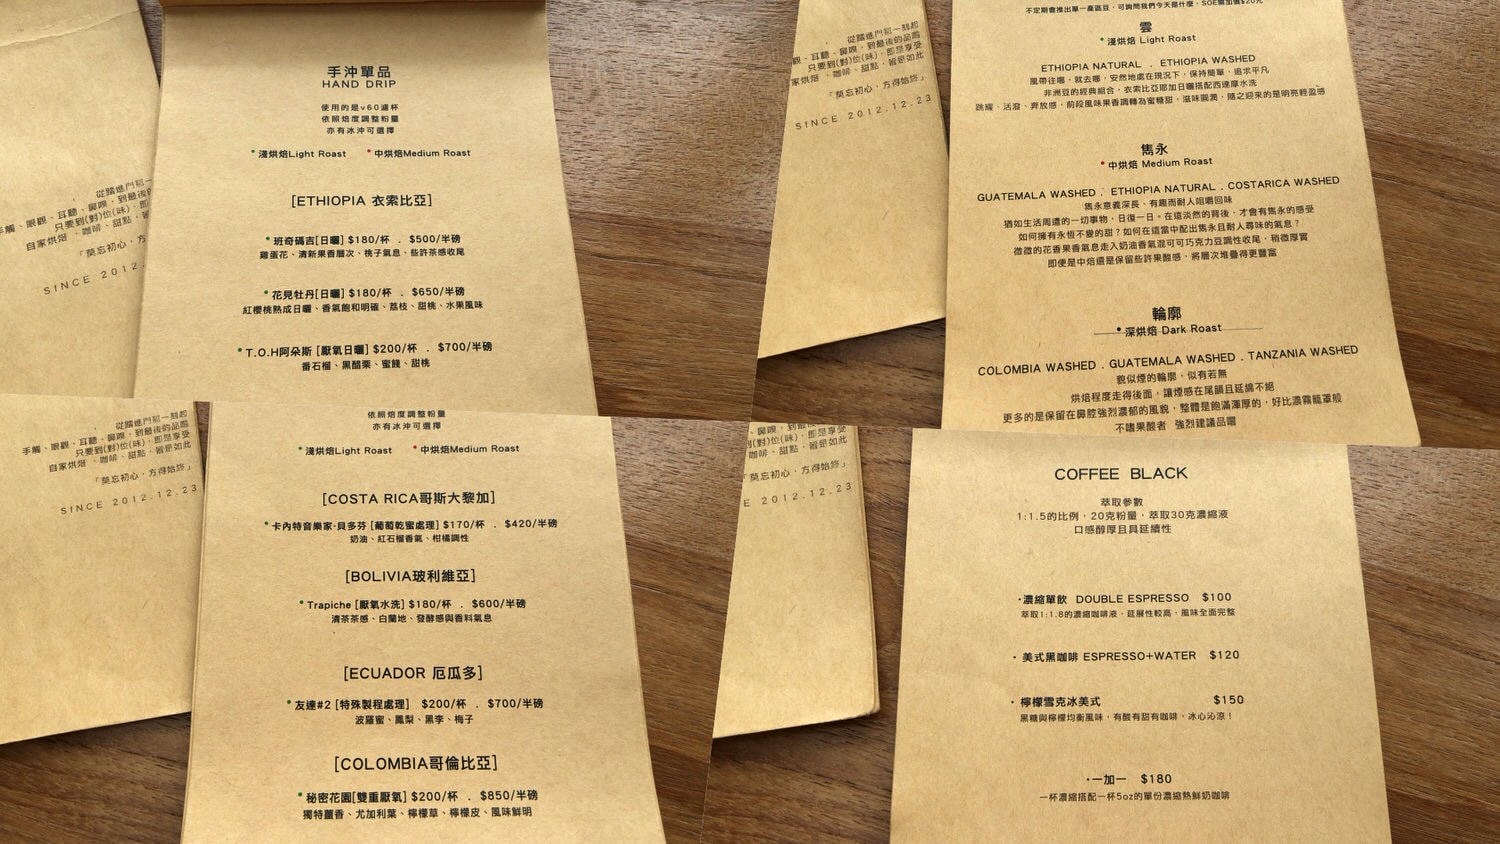 手沖單品
HAND DRIP
使用的是v60濾杯
依照焙度調整粉量
亦有冰沖可選擇
•淺烘焙Light Roast •中烘焙Medium Roast
[ETHIOPIA 衣索比亞]
•班奇碼吉[日曬] $180/杯 . $500/半磅
雞蛋花、清新果香層次、桃子氣息、些許茶感收尾
•花見牡丹[日曬] $180/杯 . $650/半磅
紅櫻桃熟成日曬、香氣飽和明確、荔枝、甜桃、水果風味
•T.O.H阿朵斯 [厭氧日曬] $200/杯 . $700/半磅
番石榴、黑醋栗、蜜餞、甜桃
從踏進門那一刻起
手觸、眼觀、耳聽、鼻嗅，到最後的
只要到(對)位(味)，即
自家烘焙、咖啡、甜點，皆
「莫忘初心，方
SINCE 2012.
不定期會推出單一產區豆，可詢問我們今天是什麼，SOE需加價$20元
雲
•淺烘焙 Light Roast
ETHIOPIA NATURAL . ETHIOPIA WASHED
風帶往哪，就去哪，安然地處在現況下，保持簡單，追求平凡
非洲豆的經典組合，衣索比亞耶加日曬搭配西達摩水洗
跳耀、活潑、奔放感，前段風味果香調轉為蜜糖甜，滋味圓潤，隨之迎來的是明亮輕盈感
雋永
•中烘焙 Medium Roast
GUATEMALA WASHED . ETHIOPIA NATURAL . COSTARICA WASHED
雋永意義深長、有趣而耐人咀嚼回味
猶如生活周遭的一切事物，日復一日。在這淡然的背後，才會有雋永的感受
如何擁有永恆不變的甜？如何在這當中配出雋永且耐人尋味的氣息？
微微的花香果香氣息走入奶油香氣混可可巧克力豆調性收尾，稍微厚實
即便是中焙還是保留些許果酸感，將層次堆疊得更豐富
輪廓
•深烘焙 Dark Roast
COLOMBIA WASHED . GUATEMALA WASHED . TANZANIA WASHED
貌似煙的輪廓，似有若無
烘焙程度走得後面，讓煙感在尾韻且延綿不絕
更多的是保留在鼻腔強烈濃郁的風貌，整體是飽滿渾厚的，好比濃霧籠罩般
不嗜果酸者 強烈建議品嚐
從踏進門那一刻起
觀、耳聽、鼻嗅，到最後的品嚐
只要到(對)位(味)，即是享受
家烘焙、咖啡、甜點，皆是如此
「莫忘初心，方得始終」
SINCE 2012.12.23
依照焙度調整粉量
亦有冰沖可選擇
•淺烘焙Light Roast •中烘焙Medium Roast
[COSTA RICA哥斯大黎加]
•卡內特音樂家-貝多芬 [葡萄乾蜜處理] $170/杯 . $420/半磅
奶油、紅石榴香氣、柑橘調性
[BOLIVIA玻利維亞]
•Trapiche [厭氧水洗] $180/杯 . $600/半磅
清茶茶感、白蘭地、發酵感與香料氣息
[ECUADOR 厄瓜多]
•友達#2 [特殊製程處理] $200/杯 . $700/半磅
波羅蜜、鳳梨、黑李、梅子
[COLOMBIA哥倫比亞]
•秘密花園[雙重厭氧] $200/杯 . $850/半磅
獨特薑香、尤加利葉、檸檬草、檸檬皮、風味鮮明
從踏進門那一刻起
手觸、眼觀、耳聽、鼻嗅，到最後的品嚐
只要到(對)位(味)，即是享受
自家烘焙、咖啡、甜點，皆是如此
「莫忘初心，方得始終」
SINCE 2012.12.23
COFFEE BLACK
萃取參數
1:1.5的比例，20克粉量，萃取30克濃縮液
口感醇厚且具延續性
•濃縮單飲 DOUBLE ESPRESSO $100
萃取1:1.8的濃縮咖啡液，延展性較高，風味全面完整
• 美式黑咖啡 ESPRESSO+WATER $120
• 檸檬雪克冰美式 $150
黑糖與檸檬均衡風味，有酸有甜有咖啡，冰心沁涼！
•一加一 $180
一杯濃縮搭配一杯5oz的單份濃縮熱鮮奶咖啡
鼻嗅，到最後的品嚐
到(對)位(味)，即是享受
、咖啡、甜點，皆是如此
「莫忘初心，方得始終」
E 2012.12.23